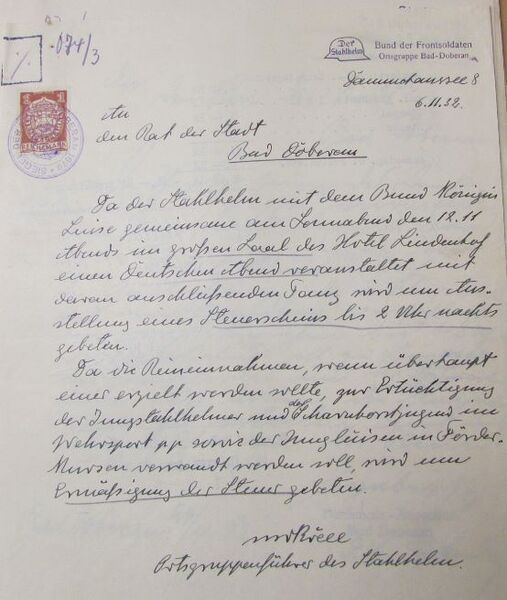 074/3
Der
Stahlhelm
Bund der Frontsoldaten
Ortsgruppe Bad-Doberan
Dammchaussee 8
6.11.32.
An
den Rat der Stadt
Bad Doberan
Da der Stahlhelm mit dem Bund Königin
Luise gemeinsame am Sonnabend den 12.11
Abends im großen Saal des Hotel Lindenhof
einen Deutschen Abend veranstaltet mit
daran anschließenden Tanz wird um Aus-
stellung eines Steuerscheins bis 2 Uhr nachts
gebeten.
Da die Reineinnahmen, wenn überhaupt
einer erzielt werden sollte, zur Ertüchtigung
der Jungstahlhelmer und der Scharnhorstjugend im
Wehrsport pp sowie der Jungluisen in Förder-
Kursen verwandt werden soll, wird um
Ermäßigung der Steuer gebeten.
Ortsgruppenführer des Stahlhelm.